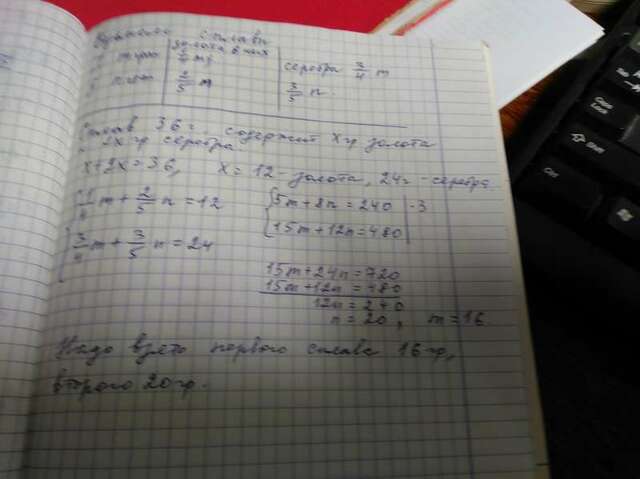 сплавы
золота в них
серебра 3/4 m
2/5 n
3/5 n
Сплав 36 г. содержит x гр золота
2x гр серебра
x+2x=36, x=12-золота, 24г-серебра
1/4 m + 2/5 n = 12
3/4 m + 3/5 n = 24
5m+8n=240 | ·3
15m+12n=480
15m+24n=720
15m+12n=480
12n=240
n=20, m=16
Надо взять первого сплава 16 гр,
второго 20 гр.
Ctrl
Alt